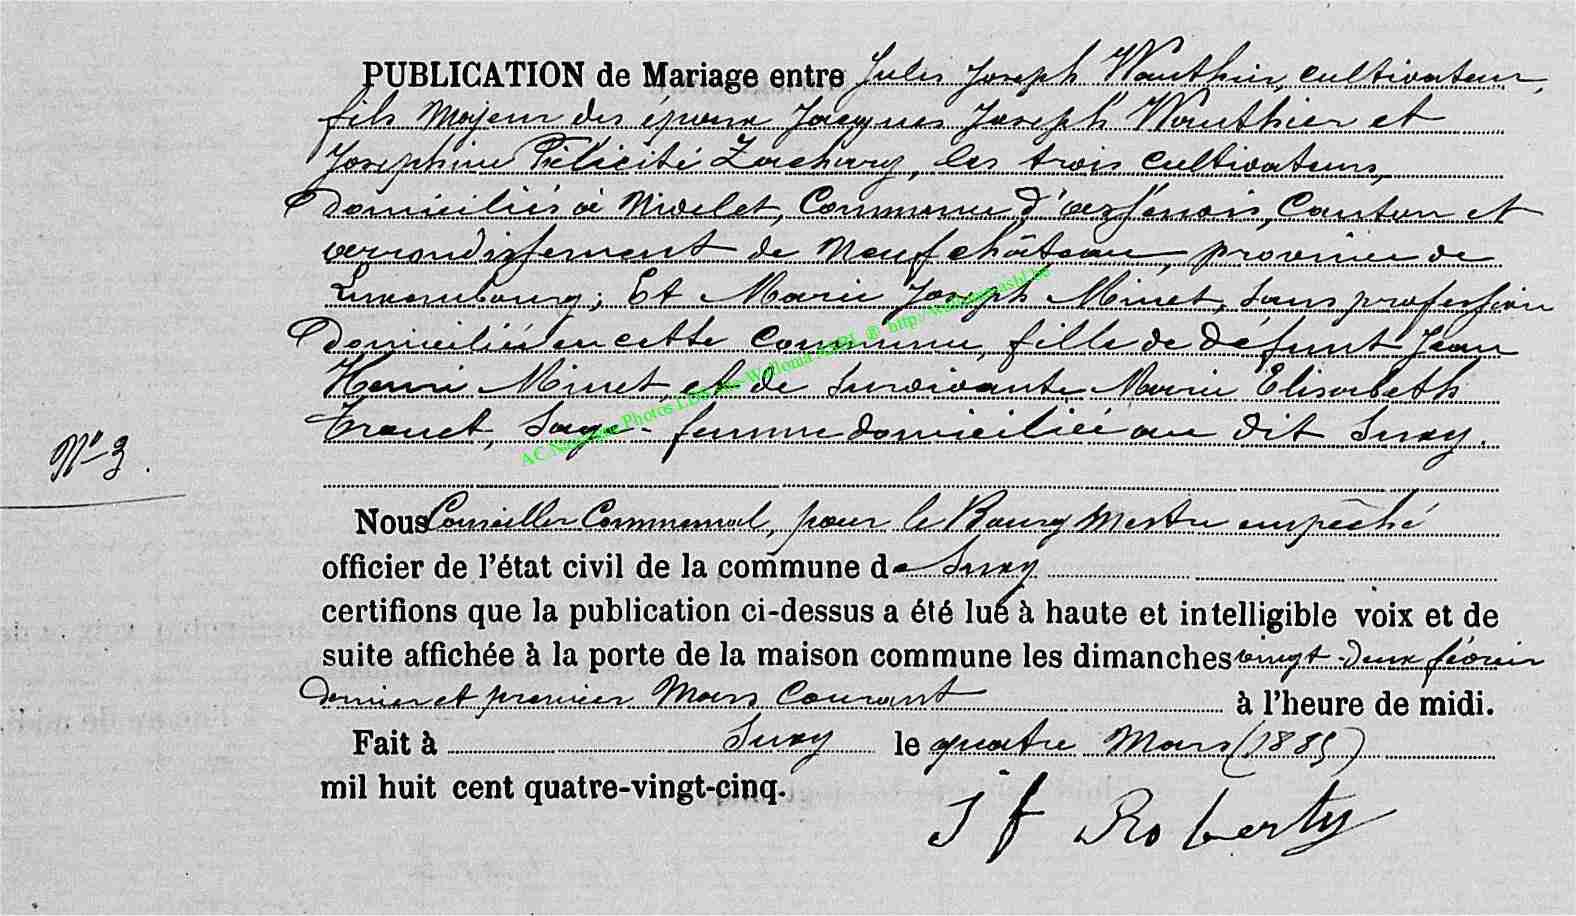 PUBLICATION de Mariage entre Jules Joseph Wauthier, cultivateur,
fils majeur des époux Jacques Joseph Wauthier et
Joséphine Félicité Zachary, les trois cultivateurs,
Domiciliés à Nivelet, Commune d'assenois, Canton et
arrondissement de Neufchâteau, province de
Luxembourg; Et Marie Joseph Minet, sans profession
Domiciliée en cette Commune, fille de défunt Jean
Henri Minet, et de survivante Marie Elisabeth
Sage-femme domiciliée au dit Suxy.
AC Photos LDS ASBL ® http://
N° 3.
Nous Conseiller Communal, pour le Bourgmestre empêché
officier de l'état civil de la commune de Suxy
certifions que la publication ci-dessus a été lue à haute et intelligible voix et de
suite affichée à la porte de la maison commune les dimanches vingt-deux février
dernier et premier Mars Courant à l'heure de midi.
Fait à Suxy le quatre Mars (1885)
mil huit cent quatre-vingt-cinq.
J f Roberty